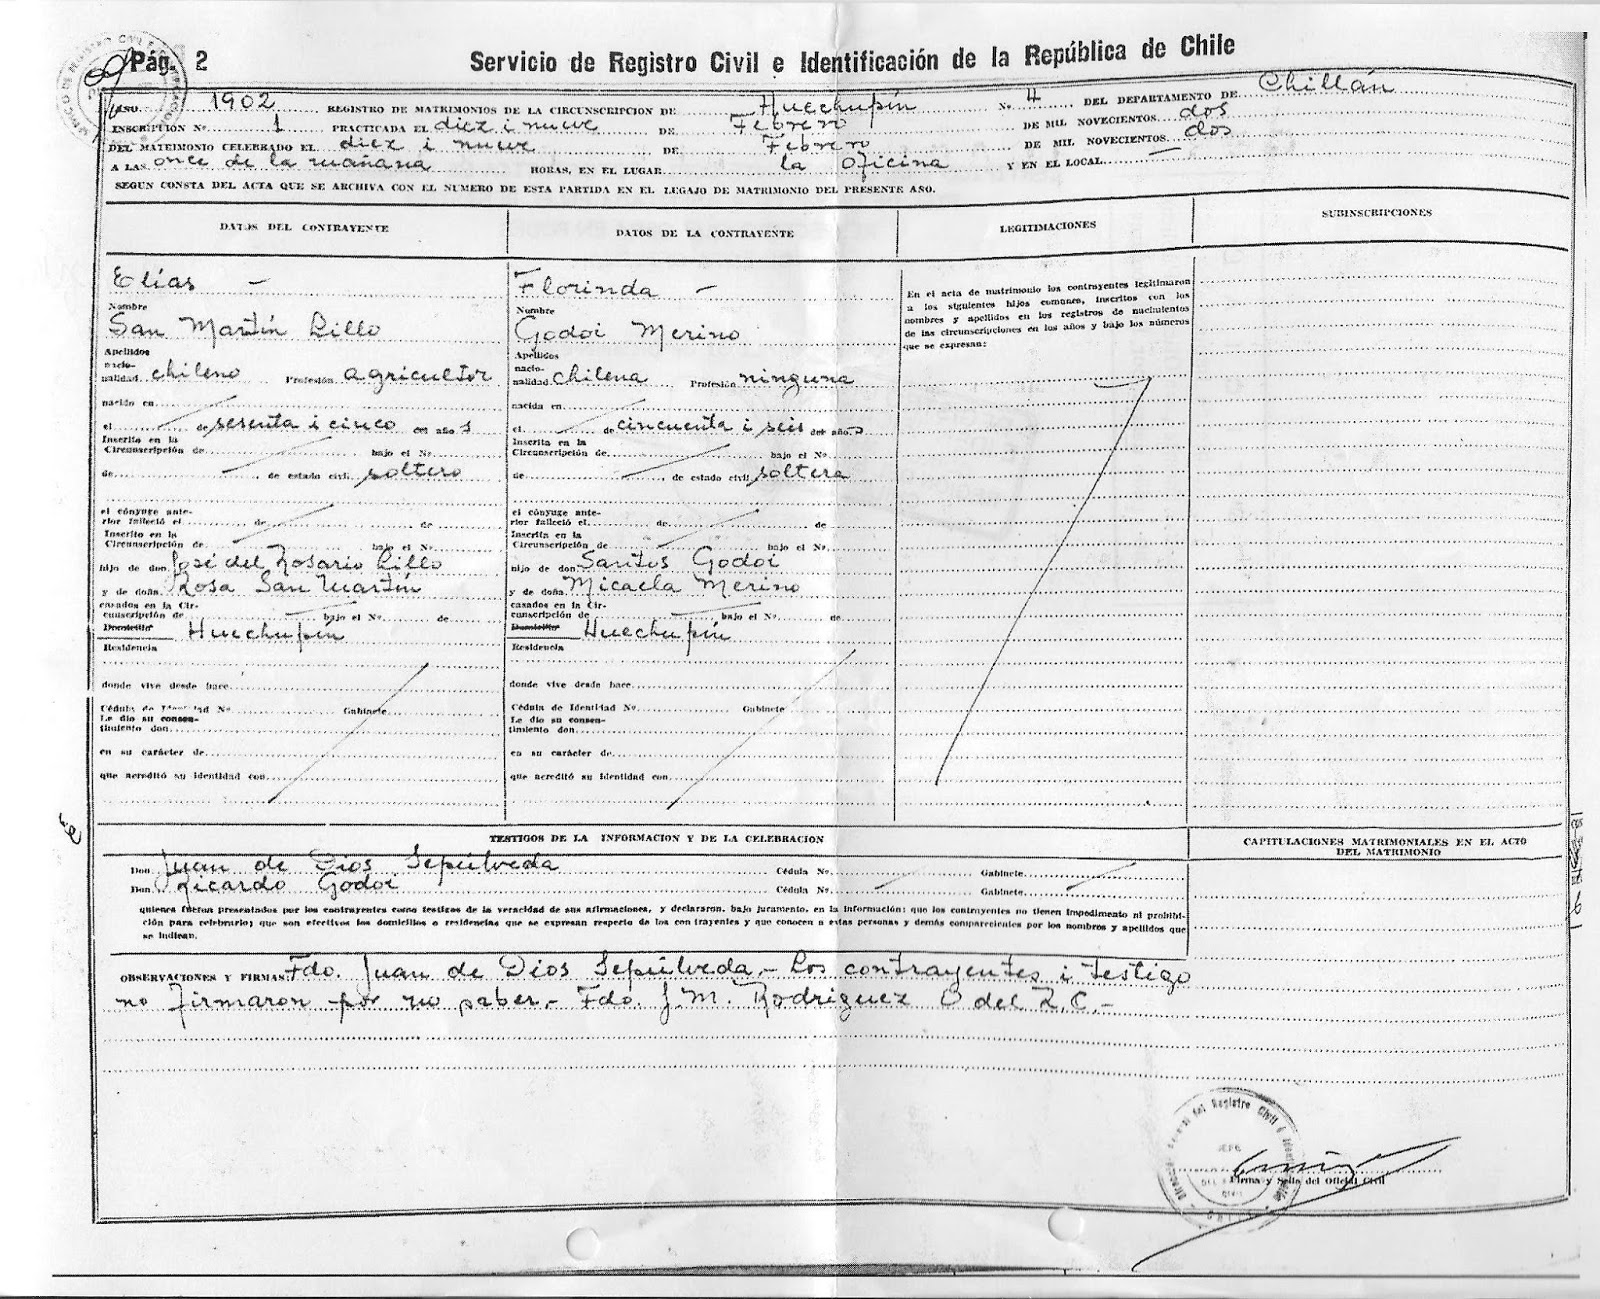 Pág. 2
Servicio de Registro Civil e Identificación de la República de Chile
AÑO 1902 REGISTRO DE MATRIMONIOS DE LA CIRCUNSCRIPCION DE Huechupín N.º 4 DEL DEPARTAMENTO DE Chillán
INSCRIPCIÓN Nº 1 PRACTICADA EL diez i nueve DE Febrero DE MIL NOVECIENTOS dos
DEL MATRIMONIO CELEBRADO EL diez i nueve DE Febrero DE MIL NOVECIENTOS dos
A LAS once de la mañana HORAS, EN EL LUGAR la Oficina Y EN EL LOCAL —
SEGUN CONSTA DEL ACTA QUE SE ARCHIVA CON EL NUMERO DE ESTA PARTIDA EN EL LEGAJO DE MATRIMONIO DEL PRESENTE AÑO.
DATOS DEL CONTRAYENTE
Elías —
Nombre
San Martín Lillo
Apellidos
nacio-
nalidad chileno Profesión agricultor
nacido en
el de sesenta i cinco del años
Inscrito en la
Circunscripción de bajo el Nº
de de estado civil soltero
el cónyuge ante-
rior falleció el de de
Inscrito en la
Circunscripción de bajo el Nº
hijo de don José del Rosario Lillo
y de doña Rosa San Martín
casados en la Cir-
cunscripción de bajo el Nº de
Domicilio Huechupín
Residencia
donde vive desde hace
Cédula de Identidad Nº Gabinete
Le dio su consen-
timiento don
en su carácter de
que acreditó su identidad con
DATOS DE LA CONTRAYENTE
Florinda —
Nombre
Godoi Merino
Apellidos
nacio-
nalidad chilena Profesión ninguna
nacida en
el de cincuenta i seis del años
Inscrita en la
Circunscripción de bajo el Nº
de de estado civil soltera
el cónyuge ante-
rior falleció el de de
Inscrita en la
Circunscripción de bajo el Nº
hijo de don Santos Godoi
y de doña Micaela Merino
casados en la Cir-
cunscripción de bajo el Nº de
Domicilio Huechupín
Residencia
donde vive desde hace
Cédula de Identidad Nº Gabinete
Le dio su consen-
timiento don
en su carácter de
que acreditó su identidad con
LEGITIMACIONES
En el acta de matrimonio los contrayentes legitimaron
a los siguientes hijos comunes, inscritos con los
nombres y apellidos en los registros de nacimientos
de las circunscripciones en los años y bajo los números
que se expresan:
SUBINSCRIPCIONES
TESTIGOS DE LA INFORMACION Y DE LA CELEBRACION
Don Juan de Dios Sepúlveda Cédula Nº Gabinete
Don Ricardo Godoi Cédula Nº Gabinete
quienes fueron presentados por los contrayentes como testigos de la veracidad de sus afirmaciones, y declararon, bajo juramento, en la información: que los contrayentes no tienen impedimento ni prohibi-
ción para celebrarlo; que son efectivos los domicilios o residencias que se expresan respecto de los contrayentes y que conocen a estas personas y demás comparecientes por los nombres y apellidos que
se indican.
CAPITULACIONES MATRIMONIALES EN EL ACTO
DEL MATRIMONIO
OBSERVACIONES Y FIRMAS Fdo. Juan de Dios Sepúlveda.- Los contrayentes i testigo
no firmaron por no saber.- Fdo. J.M. Rodríguez O del R.C.-
Firma y Sello del Oficial Civil